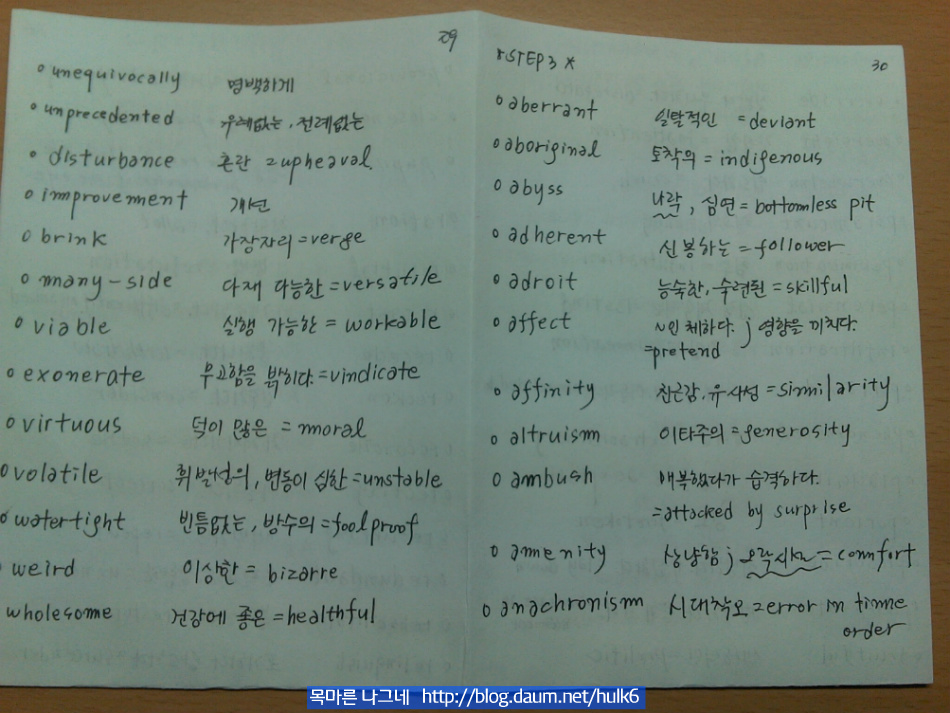 29
unequivocally 명백하게
unprecedented 우례없는, 전례없는
disturbance 혼란 =upheaval.
improvement 개선
brink 가장자리 =verge
many-side 다재 다능한 =versatile
viable 실행 가능한 = workable
exonerate 무고함을 밝히다. =vindicate
virtuous 덕이 많은 = moral
volatile 휘발성의, 변동이 심한 =unstable
watertight 빈틈없는, 방수의 =foolproof
weird 이상한 = bizarre
wholesome 건강에 좋은 =healthful
STEP3 * 30
aberrant 일탈적인 =deviant
aboriginal 토착의 = indigenous
abyss 나락, 심연 = bottomless pit
adherent 신봉하는 = follower
adroit 능숙한, 숙련된 =skillful
affect ~인 체하다. ; 영향을 미치다.
=pretend
affinity 친근감, 유사성 =similarity
altruism 이타주의 =generosity
ambush 매복했다가 습격하다.
=attacked by surprise
amenity 상냥함 ; 오락시설 = comfort
anachronism 시대착오 =error in time
order
목마른 나그네 http://blog.daum.net/hulk6